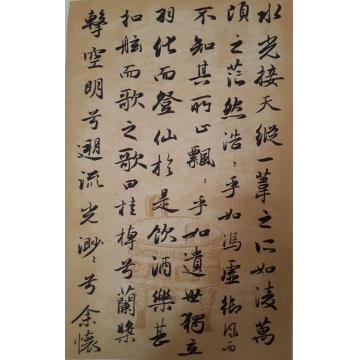 水光接天縱一葦之所如凌萬
頃之茫然浩々乎如馮虛御風而
不知其所止飄々乎如遺世獨立
羽化而登仙於是飲酒樂甚
扣舷而歌之歌曰桂棹兮蘭槳
擊空明兮遡流光渺々兮余懷